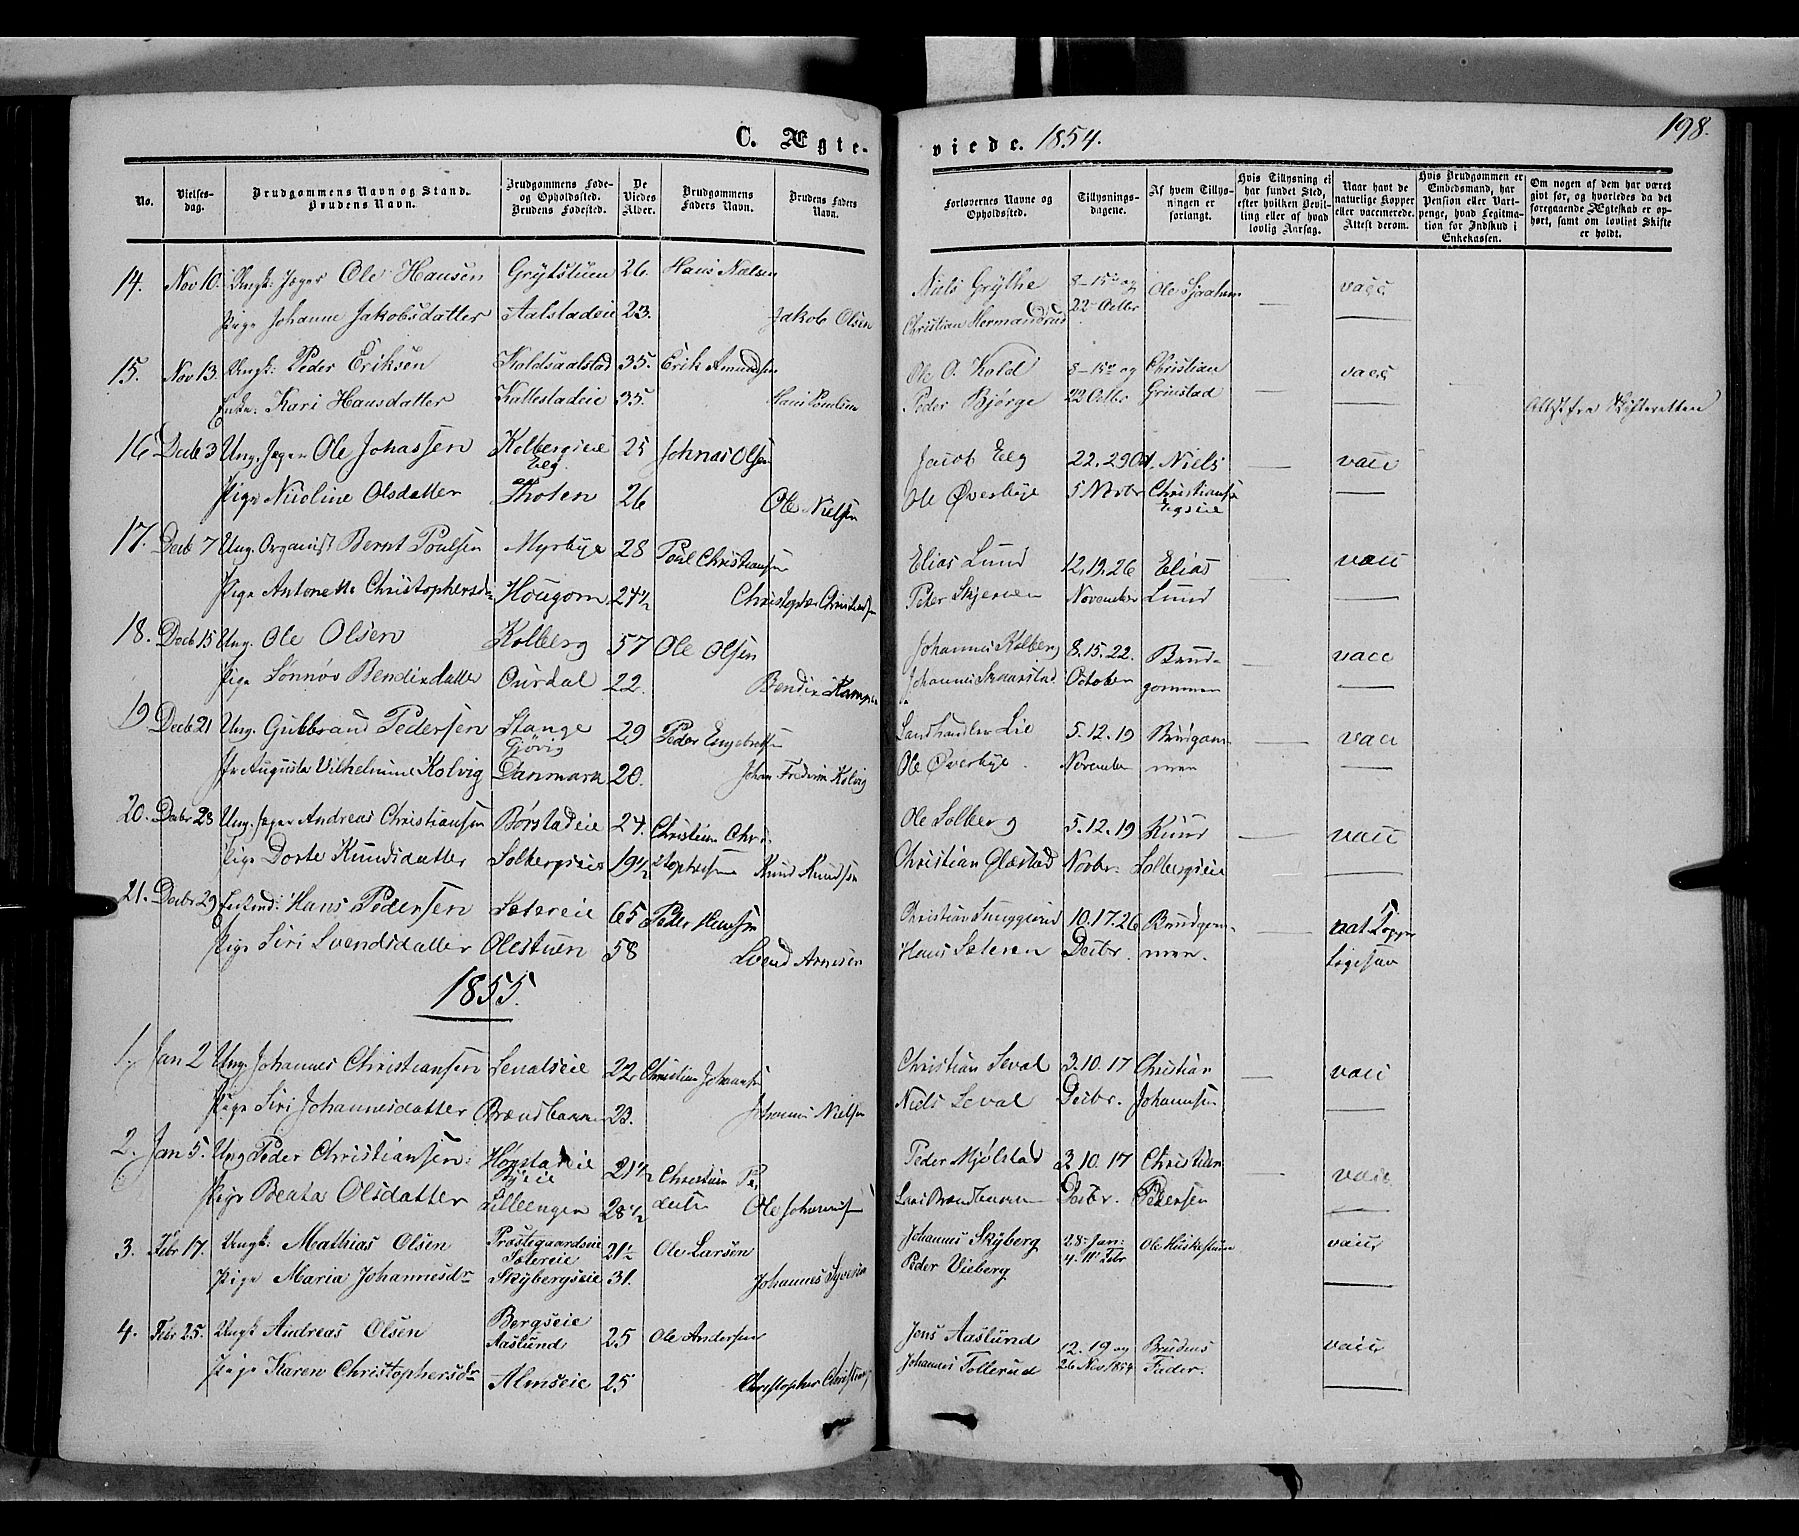 C. Ægte-
viede. 1854.
198.
No.
Vielses-
dag.
Brudgommens Navn og Stand.
Brudens Navn.
Brudgommens Føde-
og Opholdssted.
Brudens Fødested.
De
Viedes
Alder.
Brudgommens
Faders Navn.
Brudens Faders
Navn.
Forlovernes Navne og
Opholdssted.
Tillysnings-
dagene.
Af hvem Tillys-
ningen er
forlangt.
Hvis Tillysning ei
har fundet Sted,
efter hvilken Bevil-
ling eller af hvad
lovlig Aarsag.
Naar havt de
naturlige Kopper
eller vaccinerede.
Attest derom.
Hvis Brudgommen er
Embedsmand, har
Pension eller Vart-
penge, hvad Legitima-
tion for Indskud i
Enkekassen.
Om nogen af dem har været
gift før, og hvorledes da det
foregaaende Ægteskab er op-
hørt, samt om lovligt Skifte
er holdt.
14. Nov 10. Ungk: Ole Hansen Grytstuen 26. Hans Nielsen Niels Grythe 8-15de og Ole vacc
Pige Johanne Jakobsdatter Aalstadeie 23. Jakob Olsen Christian Hermandrud 22 Octbr
15. Nov 13. Ungk: Peder Eriksen Koldsaalstad 35. Erik Amundsen Ole O. Kold 8-15de og Christian vacc
Enke: Kari Hansdatter Kallestadeie 35. Hans Poulsen Peder Bjørge 22 Octbr Grimstad Attest fra Skifteretten
16 Decb 3 Ung. Ole Johassen Kolbergseie 25 Johnas Olsen Jacob Eeg 22.29 Oct. Niels vacc
Eeg
Pige Nicoline Olsdatter Thoten 26 Ole Nielsen Ole Øverbye 5 Novbr Christiansen
Egseie
17. Decb 7 Ung. Organist Bernt Poulsen Myrbye 28 Poul Christiansen Elias Lund 12.19.26 Elias vacc
Pige Antonette Christophersd. Hougom 24½ Christopher Christiansen Peter Skjerven November Lund
18. Decb 15 Ung. Ole Olsen Kolberg 57 Ole Olsen Johannes Kolberg 8.15.22. Brud- vacc
Pige Sønnøv Bendixdatter Ourdal 22. Bendix Johannes Skaarstad October gommen
19. Decb 21 Ung. Gulbrand Pedersen Stange 29 Peder Engebretsen Landhandler Lie 5.12.19 Brudgom- vacc
Gjøvig
Augusta Vilhelmine Kolvig Danmark 20. Johan Fredrik Kolvig Ole Øverbye. November men
20. Decbr 28 Ung. Andreas Christiansen Børstadeie 24. Christian Chri- Ole Solberg 5.12.19 Knud vacc
Pige Dorte Knudsdatter Solbergseie 19½ stophersen Knud Knudsen Christian Glæstad Novbr. Solbergseie
21. Decbr 29 Hans Pedersen Sætereie 65 Peder Hansen Christian 10.17.26 Brudgom- nat Kopper
Pige Siri Svendsdatter Olestuen 58 Svend Arnesen Hans Sæteren Decbr. men.
1855.
1. Jan 2 Ung. Johannes Christiansen Sevalseie 22 Christian Johansen Christian Seval 3.10.17 Christian vacc
Pige Siri Johannesdatter Brændbakken 23. Johannes Nielsen Niels Seval Decbr. Johannsen
2. Jan 5. Ung Peder Christiansen: Hogstadeie 21½ Christian Pe- Peder Mjølstad 3 10.17 Christian vacc
Byeie
Pige Beata Olsdatter Lilleengen 28½ dersen Ole Johannesen Lars Brændbakken Decbr. Pedersen
3. Febr 17. Ungk: Mathias Olsen Præstegaardseie 21½ Ole Larsen Johannes Skyberg 28 Jan: Ole Huskestuen vacc
Sætereie 4. 11 Febr
Pige Maria Johannesdr Skybergseie 31. Johannes Syversen Peder Vieberg
4. Febr 25. Ungk Andreas Olsen Bergseie 25 Ole Andersen Jens Aaslund 12.19 og Brudens vacc
Aaslund
Pige Karen Christophersdr Almseie 25 Christopher Johannes Tollerud 26 Nov. 1854 Fader.